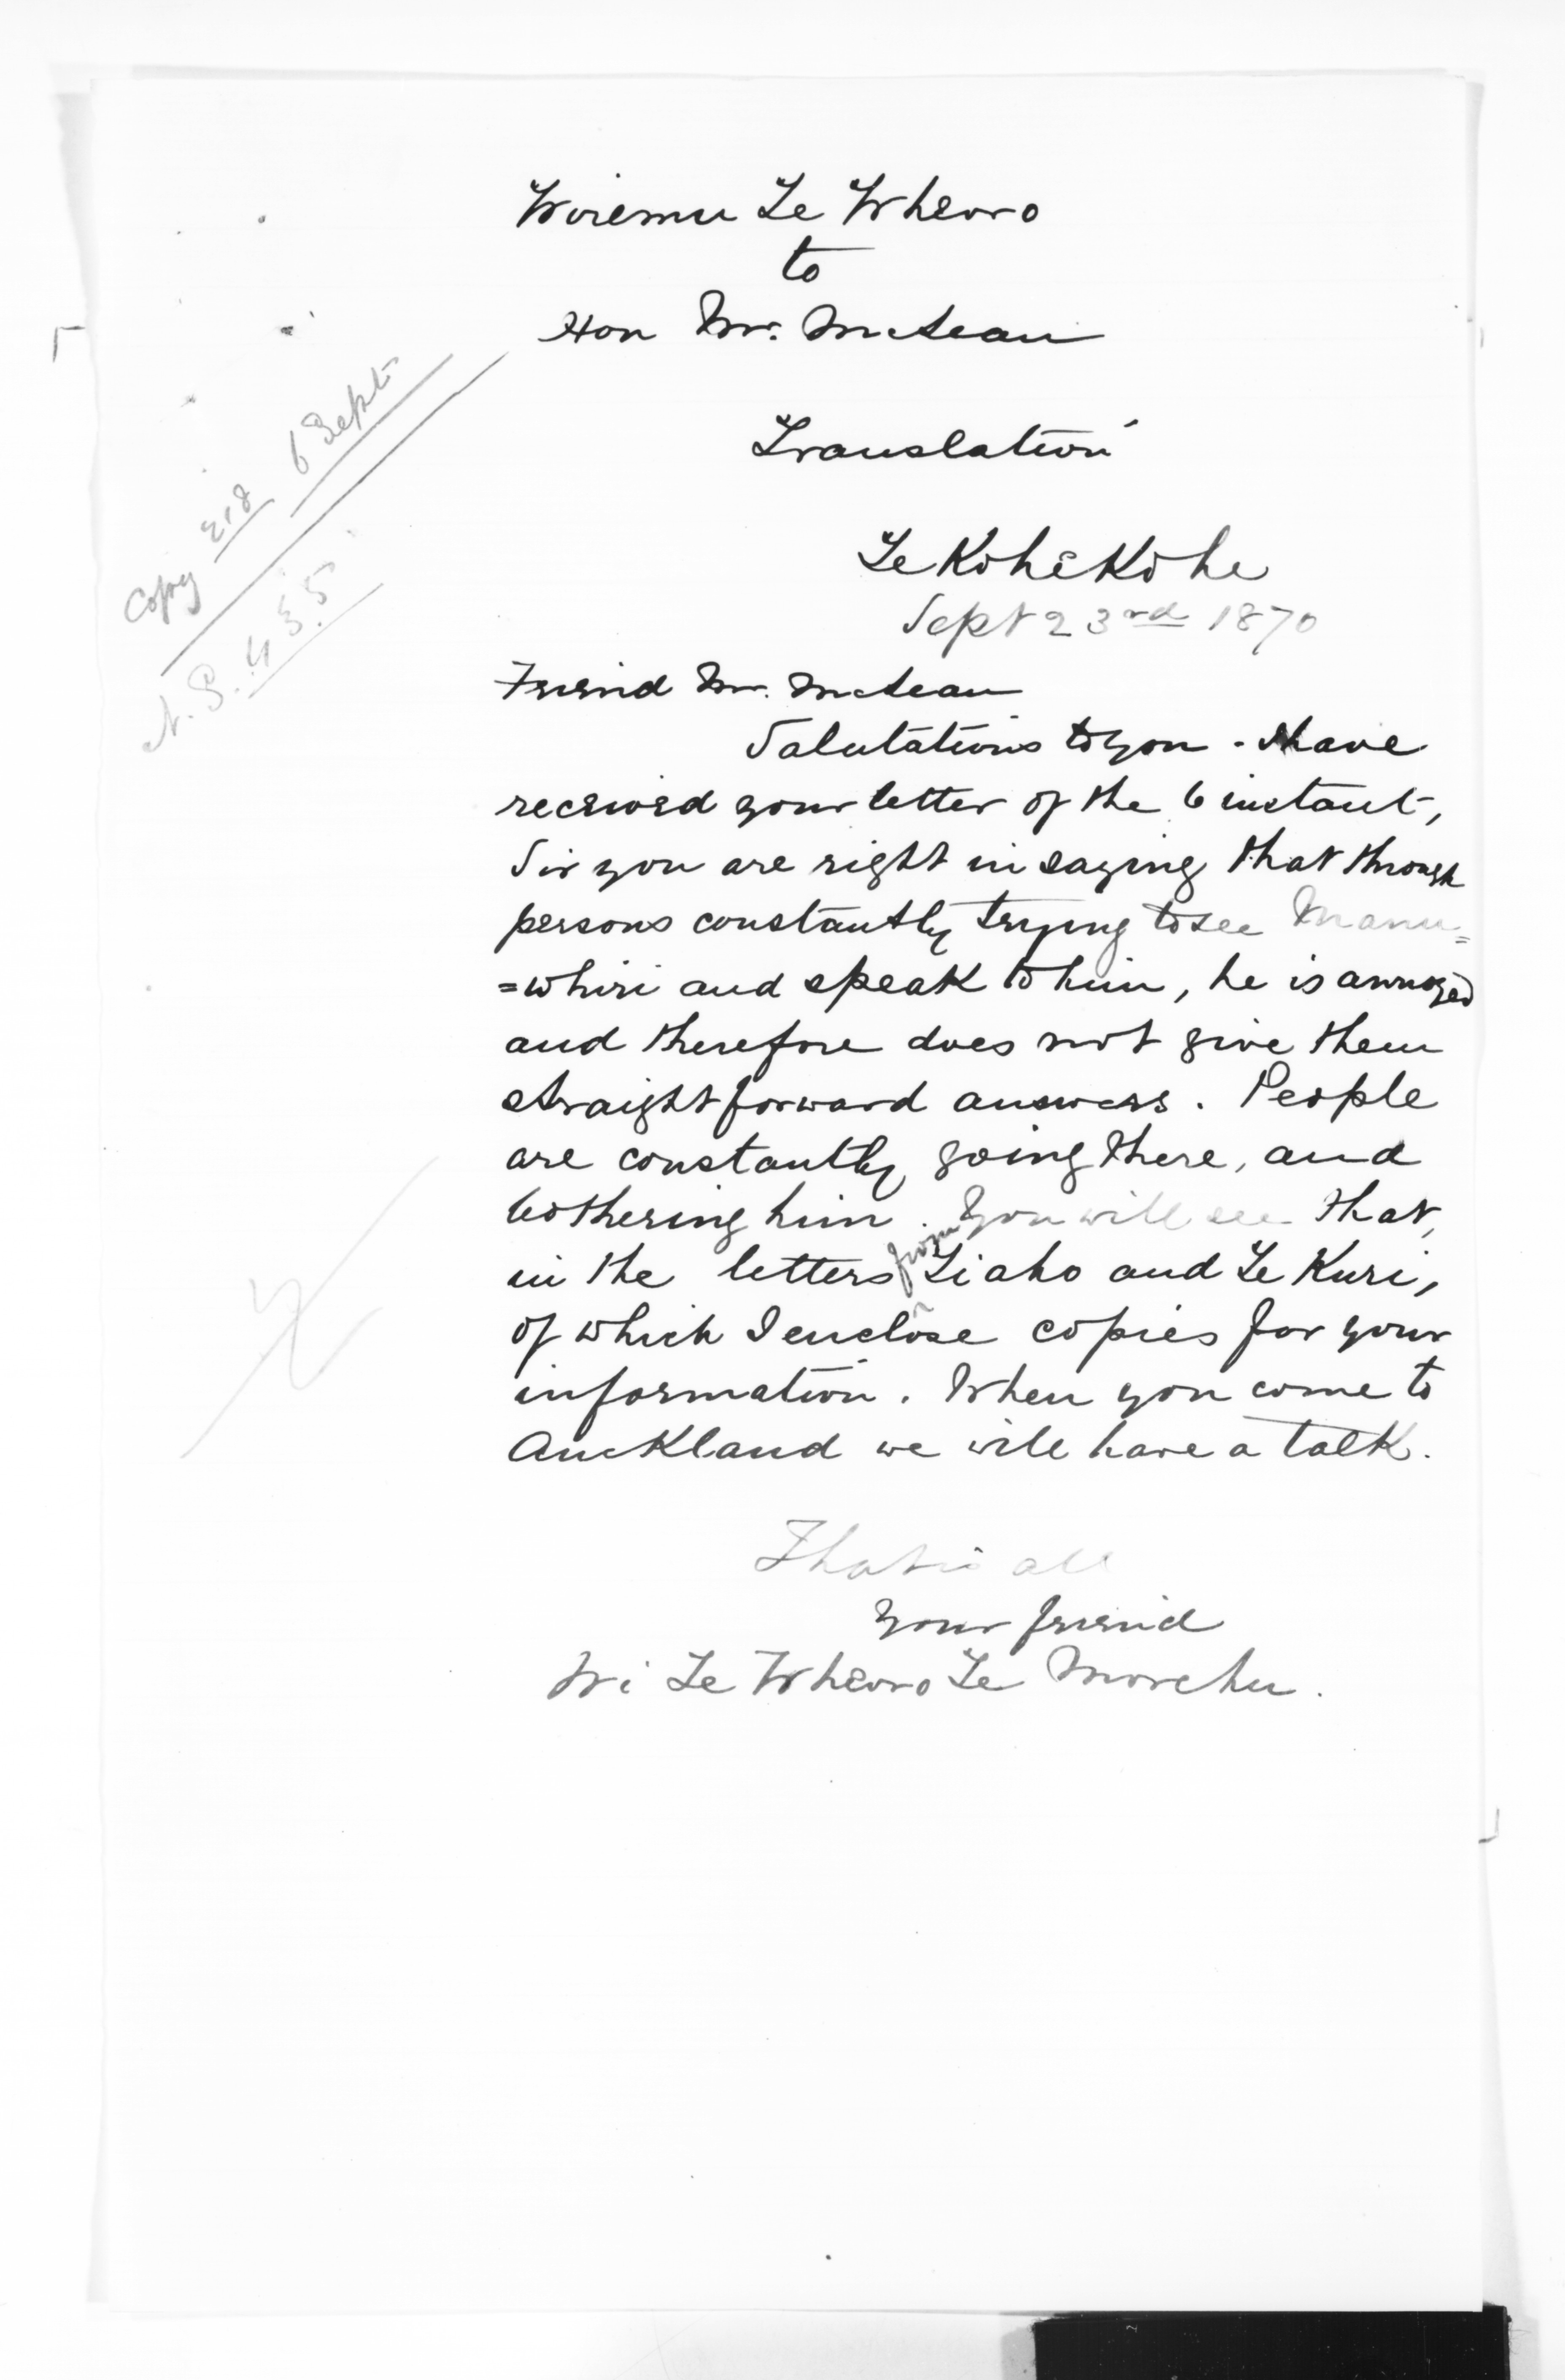 Wiremu Te Wheoro
to
Hon Mr. McLean
Translation
Te Kohekohe
Sept 23rd 1870
Copy 218 6 Sept
N.S. 435
Friend Mr. McLean
Salutations to you. I have
received your letter of the 6 instant,
Sir you are right in saying that through
persons constantly trying to see Manu=
=whiri and speak to him, he is annoyed
and therefore does not give them
straightforward answers. People
are constantly going there, and
bothering him. You will see that,
in the letters from Tiaho and Te Kuri,
of which I enclose copies for your
information. When you come to
Auckland we will have a talk.
That is all
Your friend
Wi Te Wheoro Te Morehu.